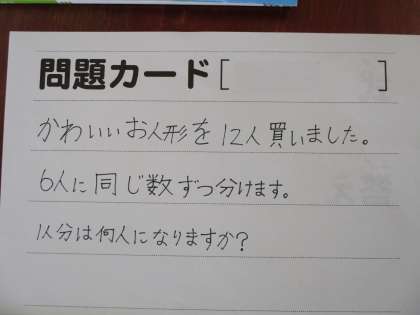 問題カード[ ]
かわいいお人形を12人買いました。
6人に同じ数ずつ分けます。
1人分は何人になりますか?